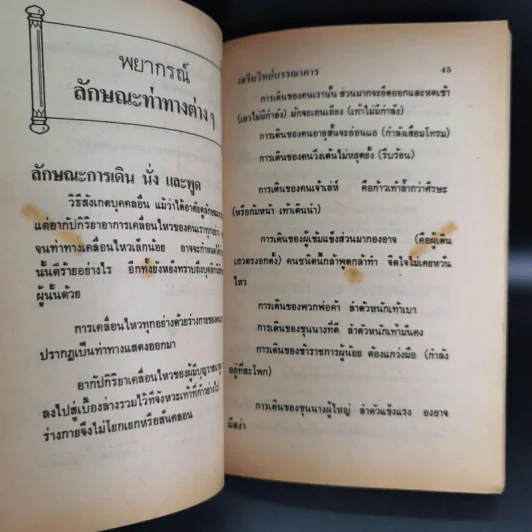 พยากรณ์
ลักษณะท่าทางต่าง ๆ
ลักษณะการเดิน นั่ง และพูด
วิธีสังเกตบุคคลอื่น แม้ว่าได้อาศัยดูลักษณะ
แต่อากัปกิริยาอาการเคลื่อนไหวของคนเราทุกอย่าง
จนท่าทางเคลื่อนไหวเล็กน้อย อาจจะกำหนดได้
นั้นดีร้ายอย่างไร อีกทั้งยังหยั่งทราบถึงบุคลิก
ผู้นั้นด้วย
การเคลื่อนไหวทุกอย่างด้วยร่างกายของ
ปรากฏเป็นท่าทางแสดงออกมา
อากัปกิริยาเคลื่อนไหวของผู้มีบุญวาสนา
ลงไปสู่เบื้องล่างรวมไว้ที่จังหวะเท้าที่ก้าวย่างไป
ร่างกายจึงไม่โยกเยกหรือสั่นคลอน
เสริมวิทย์บรรณาคาร 45
การเดินของคนเรานั้น ส่วนมากจะยืดออกและหดเข้า
(เอวไม่มีกำลัง) มักจะเอนเอียง (เท้าไม่มีกำลัง)
การเดินของคนอายุสั้นจะอ่อนแอ (กำลังเสื่อมโทรม)
การเดินของคนวิ่งเต้นไม่หยุดยั้ง (รีบร้อน)
การเดินของคนเจ้าเล่ห์ คือก้าวเท้าล้ำกว่าศีรษะ
(หรือก้มหน้า เท้าเดินนำ)
การเดินของผู้เข้มแข็งส่วนมากองอาจ (คือผู้เดิน
เอวตรงอกตั้ง) คนชนิดนี้กล้าพูดกล้าทำ จิตใจไม่เคยหวั่น
ไหว
การเดินของพวกพ่อค้า ลำตัวหนักเท้าเบา
การเดินของขุนนางที่ดี ลำตัวหนักเท้ามั่นคง
การเดินของข้าราชการผู้น้อย ต้องแกว่งมือ (กำลัง
อยู่ที่สะโพก)
การเดินของขุนนางผู้ใหญ่ ลำตัวแข็งแรง องอาจ
มีสง่า